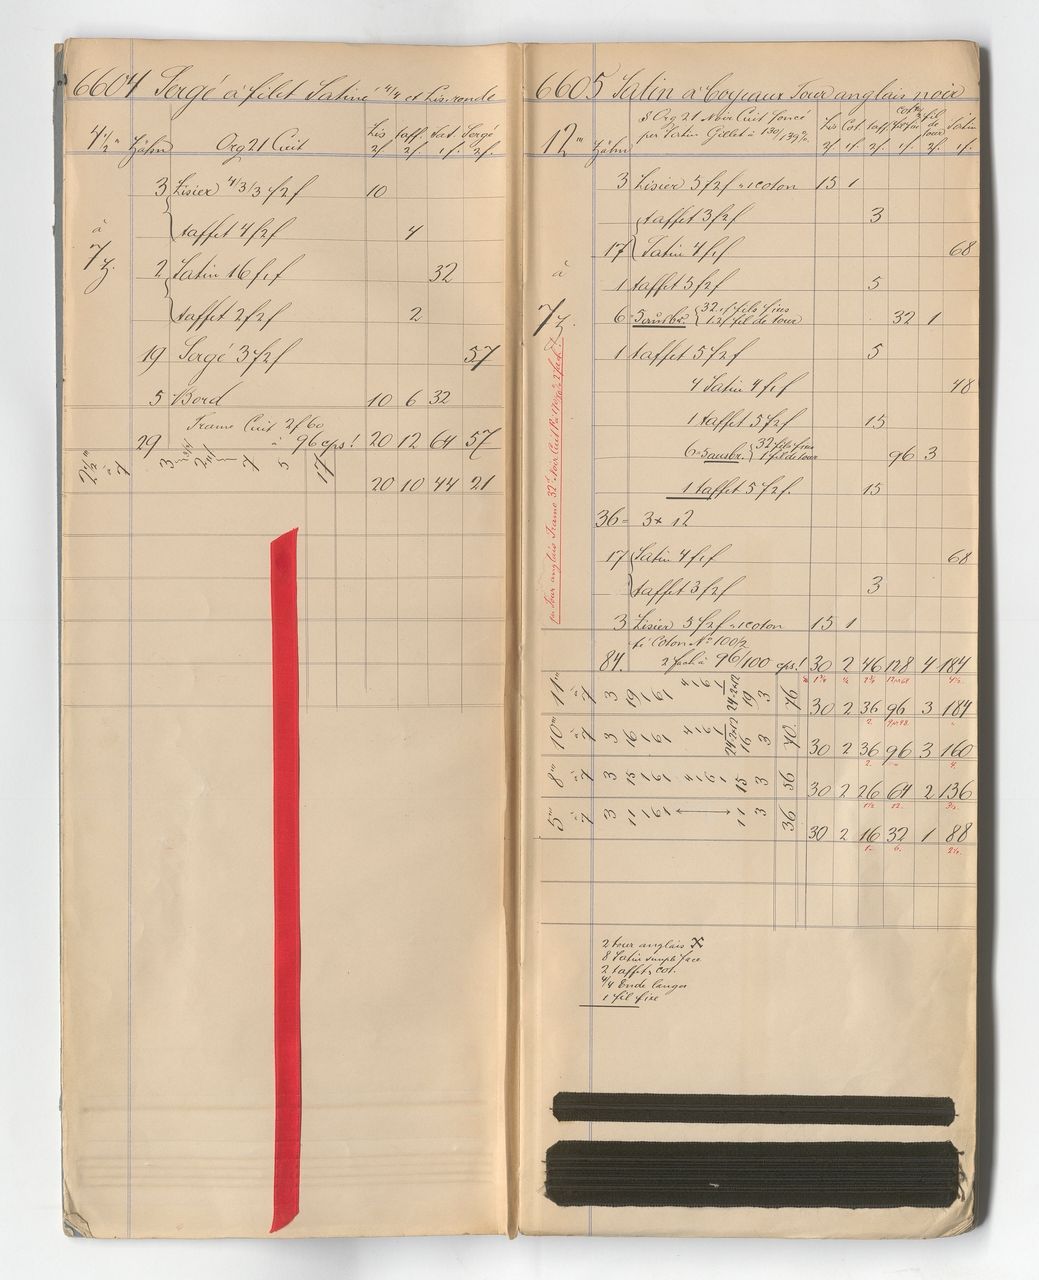 6604 Sergé à filet Satiné 4/4 et Lis. ronde
Lis taff. Sat. Sergé
4½''' Zähn Org 21 Cuit 2f. 2f. 1f. 2f.
3 Lisier 4/3/3 f 2f 10
à taffet 4 f 2f 4
7 z. 2 Satin 16 f 1f 32
taffet 2 f 2f 2
19 Sergé 3 f 2f 57
5 Bord 10 6 32
Trame Cuit 2f 60
29 à 96 cps! 20 12 64 57
2½''' à 7 3 2 7 5 17
20 10 44 21
6605 Satin à boyaux Tour anglais noir
8 Org 21 Noir Cuit foncé Lis Cot. taff. cot. fil de tour Satin
12''' Zähn per Satin Gillet à 130/139 2f. 1f. 2f. 1f. 2f. 1f.
3 Lisier 5 f 2f 1 coton 15 1
taffet 3 f 2f 3
17 Satin 4 f 1f 68
à 1 taffet 5 f 2f 5
7 z. 6 32 1f fils fins
1 2f fil de tour 32 1
1 taffet 5 f 2f 5
4 Satin 4 f 1f 48
1 taffet 5 f 2f 15
6 32 fils fins
1 fil de tour 96 3
1 taffet 5 f 2f. 15
36 = 3 x 12
17 Satin 4 f 1f 68
taffet 3 f 2f 3
3 Lisier 5 f 2f 1 coton 15 1
Coton No 100/2
84. 2 fach à 96/100 cps! 30 2 46 128 4 184
11''' à 7 3 19 1 6 1 4 1 6 1 24=2x12 19 3 76 30 2 36 96 3 184
10''' à 7 3 16 1 6 1 4 1 6 1 24=2x12 16 3 70. 30 2 36 96 3 160
8''' à 7 3 15 1 6 1 4 1 6 1 15 3 56 30 2 26 64 2 136
5''' à 7 3 11 1 6 1 11 3 36 30 2 16 32 1 88
2 tour anglais X
8 Satin simple face
2 taffet, cot.
4/4 Ende langer
1 fil fixe